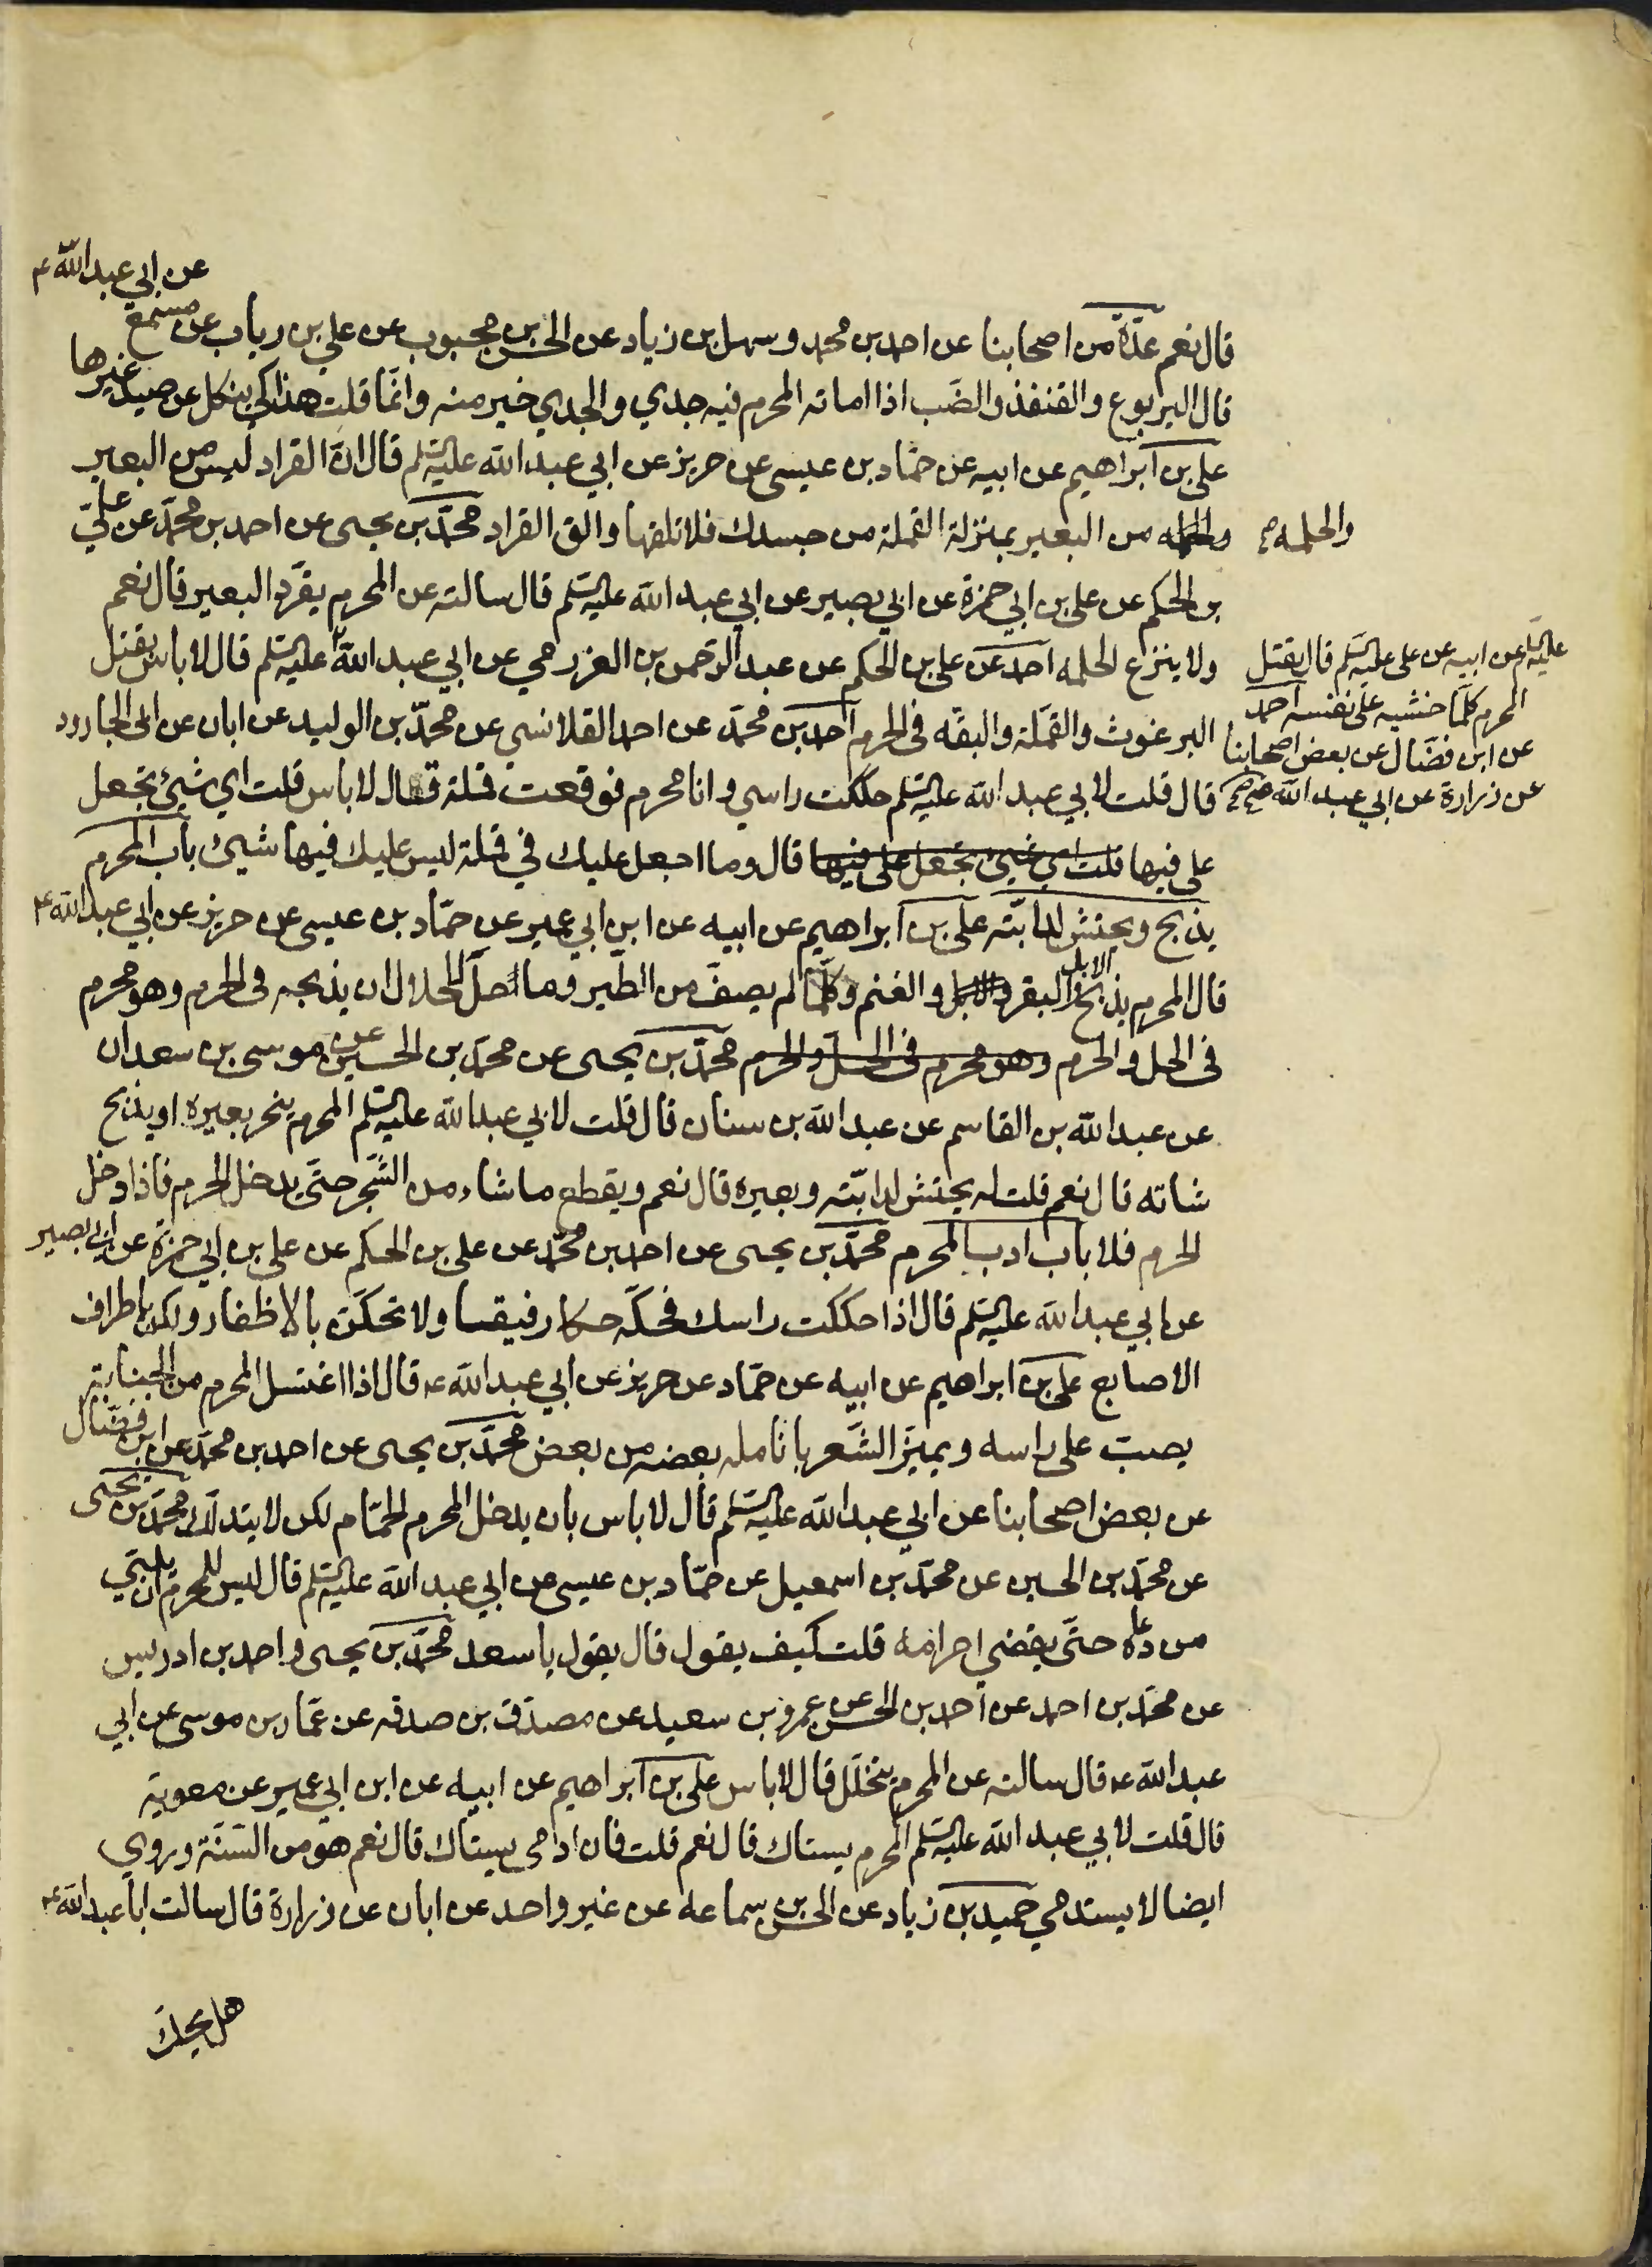 عن ابي عبد الله ع
قال نعم عدّة من اصحابنا عن احمد بن محمد وسهل بن زياد عن الحسن بن محبوب عن علي بن رياب عن مسمع
قال اليربوع والقنفذ والضَب اذا اماته المحرم فيه جدي والجدي خير منه وانّما قلت هذا كي ينكل عن صيد غيرها
علي بن ابراهيم عن ابيه عن حمّاد بن عيسى عن حريز عن ابي عبد الله عليه السلم قال انّ القراد ليس من البعير
والحلمه من البعير بمنزلة القملة من جسدك فلا تلقها والق القراد محمّد بن يحيى عن احمد بن محمّد عن عليّ
والحلمه صح
بن الحكم عن علي بن ابي حمزة عن ابي بصير عن ابي عبد الله عليه السلم قال سالته عن المحرم يقرّد البعير قال نعم
ولا ينزع الحلمه احمد عن علي بن الحكم عن عبد الرّحمن بن العزرمي عن ابي عبد الله عليه السلم قال لا باس بقتل
عليه السلم عن ابيه عن علي عليه السلم قال يقتل
المحرم كلّما خشيه على نفسه احمد
عن ابن فضّال عن بعض اصحابنا
عن زرارة عن ابي عبد الله ع صح
البرغوث والقمّلة والبقّه في الحرم احمد بن محمّد عن احمد القلانسي عن محمّد بن الوليد عن ابان عن ابي الجارود
قال قلت لابي عبد الله عليه السلم حككت راسي وانا محرم فوقعت قملة قال لا باس قلت اي شيئ تجعل
علي فيها قلت اي شيئ تجعل علي فيها قال وما اجعل عليك في قملة ليس عليك فيها شيئ باب المحرم
يذبح ويحتش لدابّته علي بن ابراهيم عن ابيه عن ابن ابي عمير عن حمّاد بن عيسى عن حريز عن ابي عبد الله ع
قال المحرم يذبح الابل والبقر والابل والغنم وكلّما لم يصفّ من الطّير وما احلّ للحلال ان يذبحه في الحرم وهو محرم
في الحل والحرم وهو محرم في الحلّ والحرم محمّد بن يحيى عن محمّد بن الحسين عن موسى بن سعدان
عن عبد الله بن القاسم عن عبد الله بن سنان قال قلت لابي عبد الله عليه السلم المحرم ينحر بعيره او يذبح
شاته قال نعم قلت له يحتش لدابّته وبعيره قال نعم ويقطع ما شاء من الشّجر حتّى يدخل الحرم فاذا دخل
الحرم فلا باب ادب المحرم محمّد بن يحيى عن احمد بن محمّد عن علي بن الحكم عن علي بن ابي حمزة عن ابي بصير
عن ابي عبد الله عليه السلم قال اذا حككت راسك فحكّه حكا رفيقا ولا تحكّنّ بالاظفار ولكن باطراف
الاصابع علي بن ابراهيم عن ابيه عن حمّاد عن حريز عن ابي عبد الله ع قال اذا اغتسل المحرم من الجنابة
يصبّ على راسه ويميّز الشّعر بانامله بعضه من بعض محمّد بن يحيى عن احمد بن محمّد عن ابن فضّال
عن بعض اصحابنا عن ابي عبد الله عليه السلم قال لا باس بان يدخل المحرم الحمّام لكن لا يتدلّك محمّد بن يحيى
عن محمّد بن الحسين عن محمّد بن اسمعيل عن حمّاد بن عيسى عن ابي عبد الله عليه السلم قال ليس للمحرم ان يلبّي
من دعاه حتّى يقضي احرامه قلت كيف يقول قال يقول يا سعد محمّد بن يحيى واحمد بن ادريس
عن محمّد بن احمد عن احمد بن الحسن عن عمرو بن سعيد عن مصدّق بن صدقه عن عمّار بن موسى عن ابي
عبد الله ع قال سالته عن المحرم يتخلّل قال لا باس علي بن ابراهيم عن ابيه عن ابن ابي عمير عن معوية
قال قلت لابي عبد الله عليه السلم المحرم يستاك قال نعم قلت فان ادمى يستاك قال نعم هو من السّنّة وروي
ايضا لا يستدمي حميد بن زياد عن الحسن بن سماعه عن غير واحد عن ابان عن زرارة قال سالت ابا عبد الله ع
هل يحكّ